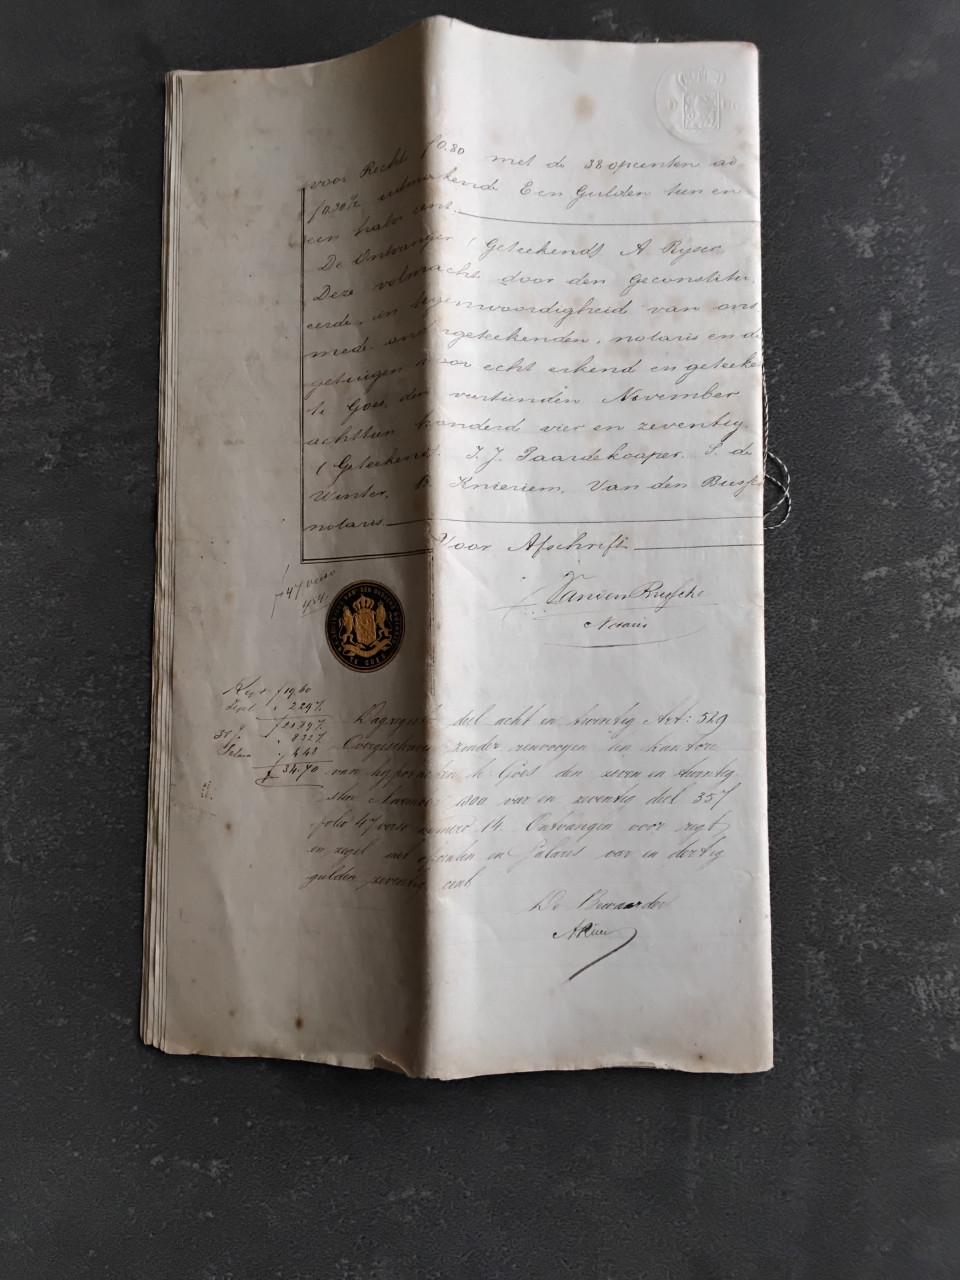 voor Recht f 0.80 met de 38 opcenten ad
f 0.30½ uitmakende Een Gulden tien en
een halve cent.
De Ontvanger (Geteekend) A. Ryser
Deze volmacht door den geconstitu-
eerde, in tegenwoordigheid van ons
mede ondergeteekenden, notaris en de
getuigen voor echt erkend en geteeke
te Goes, den veertienden November
achttien honderd vier en zeventig.
(Geteekend) I. J. Paardekooper. S. de
Winter, B. Knieriem, Van den Bussche
notaris.
Voor Afschrift
f 47 verso
Van den Bussche
Notaris
GOES
Regt f 19.60
Zegel " 2.29½
38 %
" 8.32½
Salaris " 4.48
f 34.70
Dagregister deel acht en twentig Art: 529
Overgeschreven zonder renvooyen ten kantore
van hypotheken te Goes den zeven en twentig
sten November 1800 vier en zeventig deel 357
folio 47 verso numero 14. Ontvangen voor regt
en zegel met opcenten en Salaris vier en dertig
gulden zeventig cent
De Bewaarder